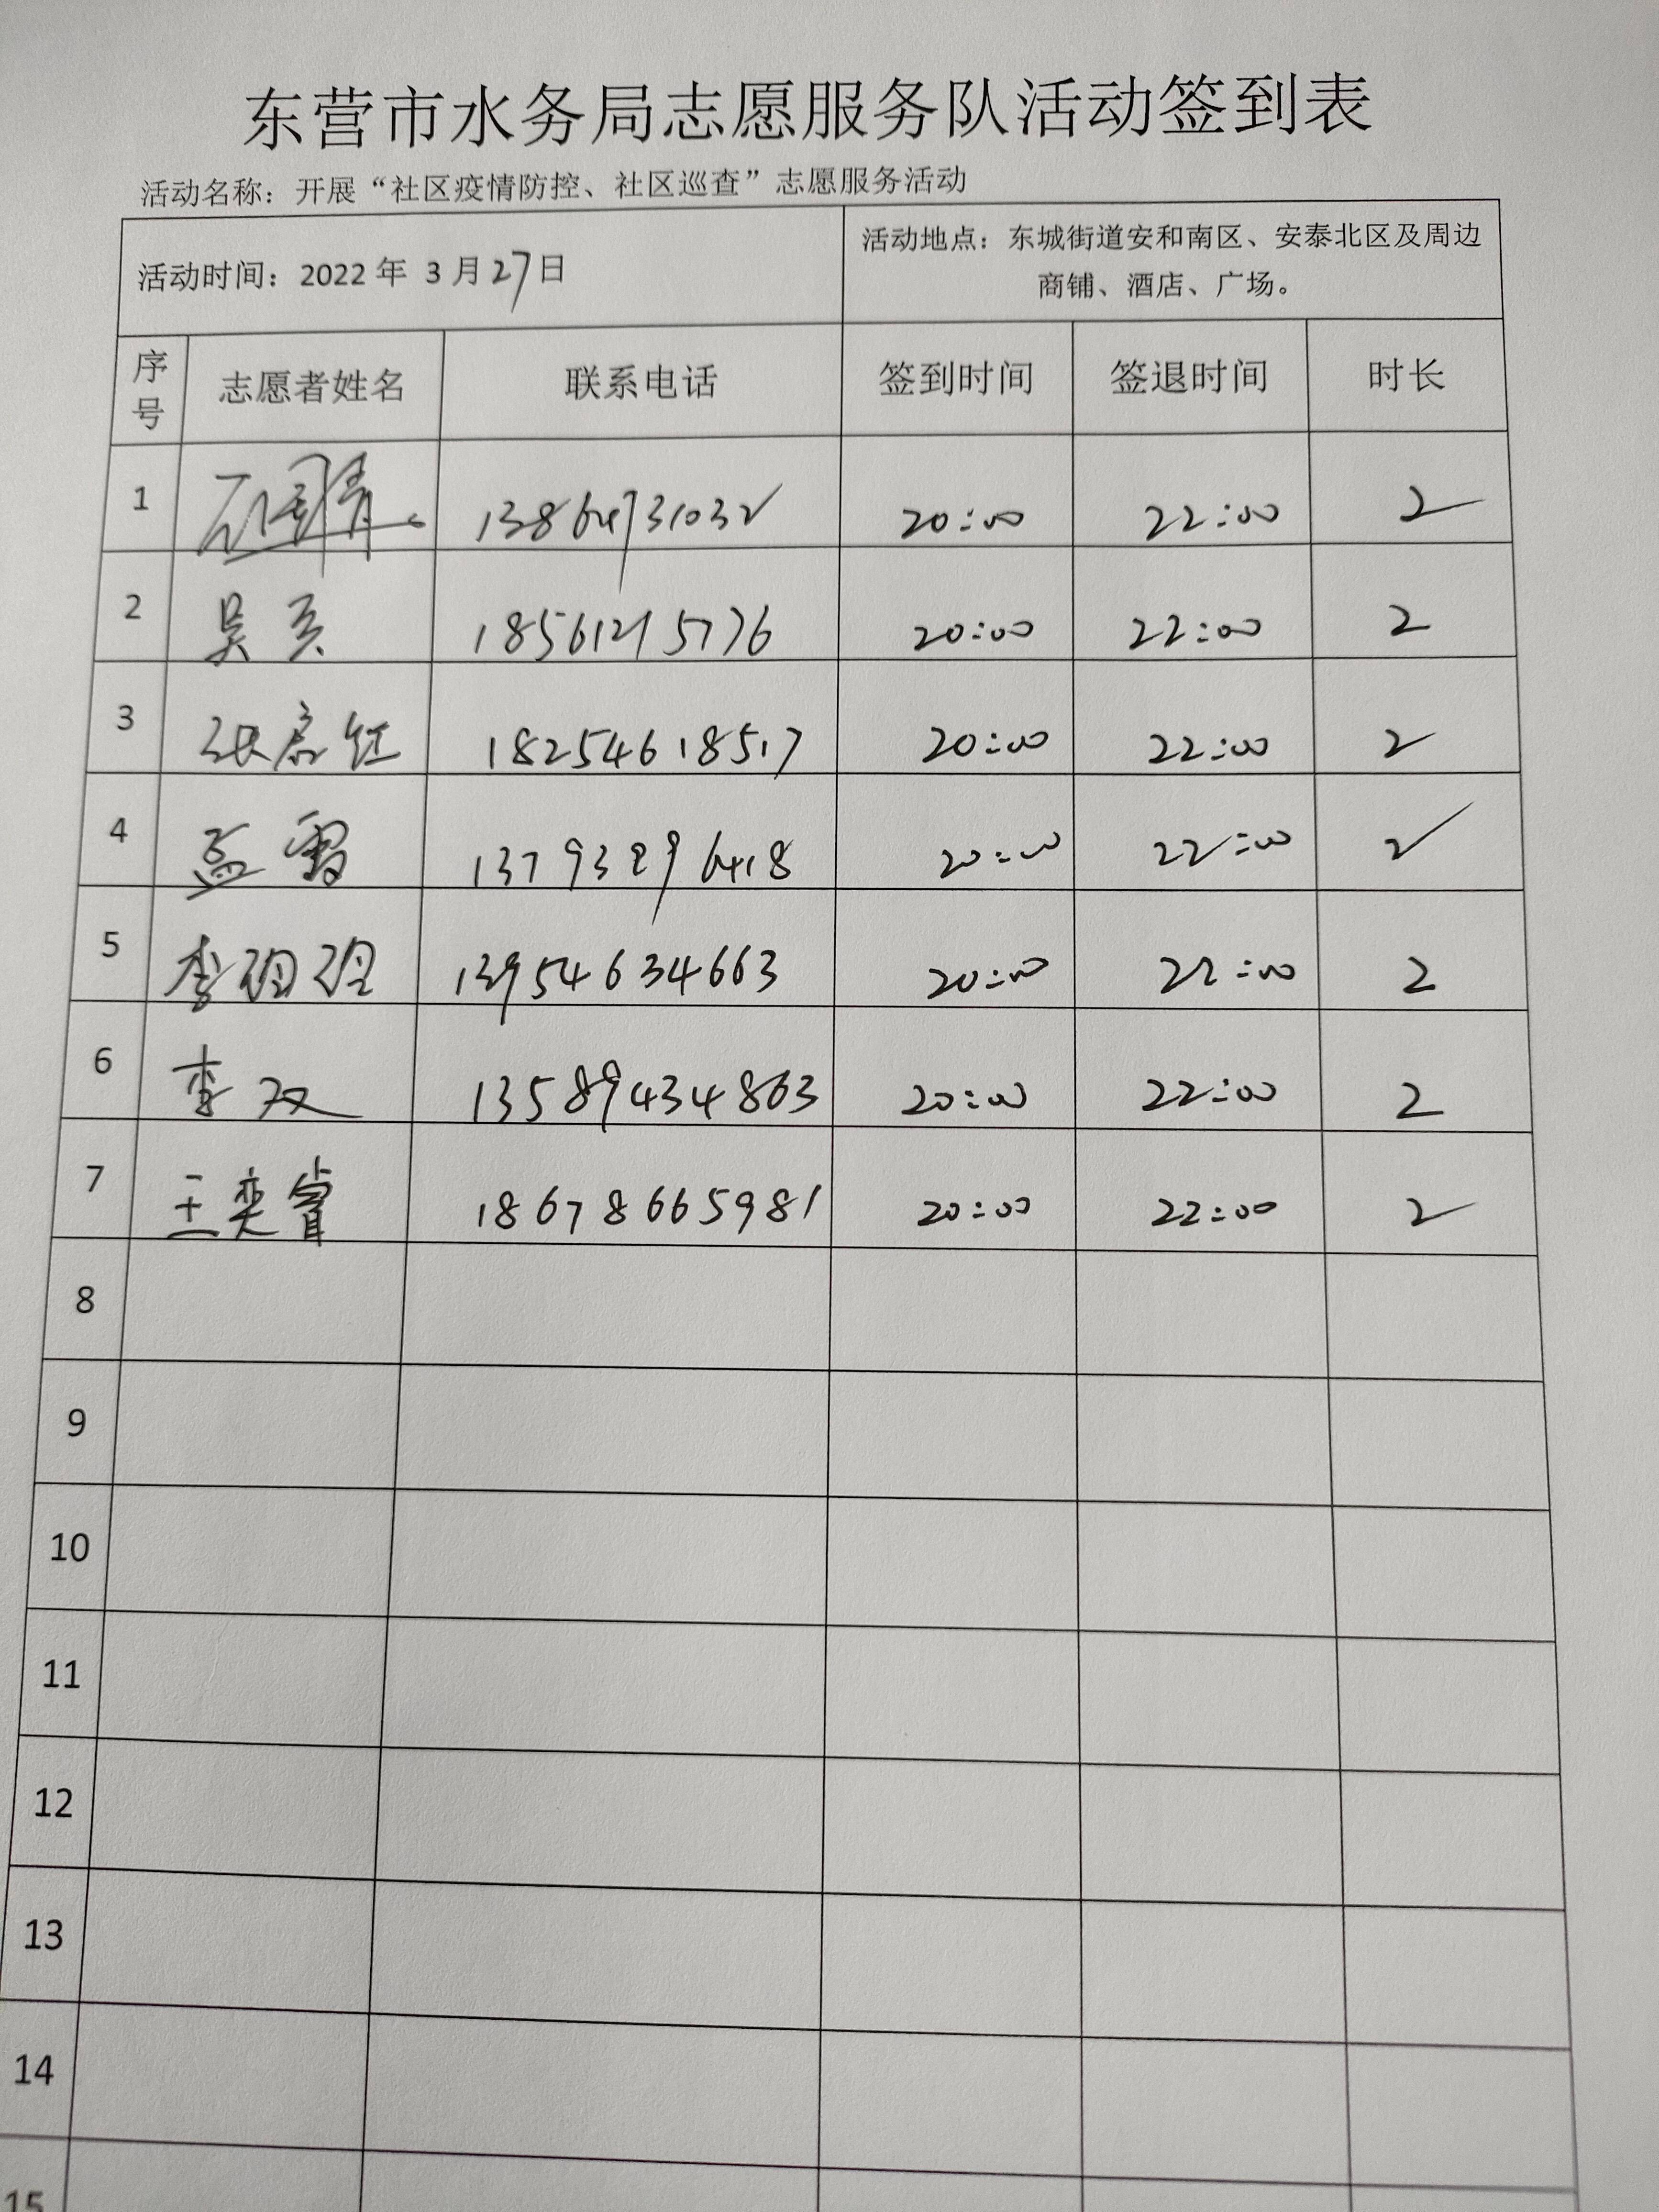 东营市水务局志愿服务队活动签到表
活动名称：开展“社区疫情防控、社区巡查”志愿服务活动
活动时间：2022年 3月27日
活动地点：东城街道安和南区、安泰北区及周边
商铺、酒店、广场。
序号 志愿者姓名 联系电话 签到时间 签退时间 时长
1 13864731032 20:00 22:00 2
2 吴 18561215776 20:00 22:00 2
3 张 18254618517 20:00 22:00 2
4 孟雷 13793296418 20:00 22:00 2
5 李 13954634663 20:00 22:00 2
6 李双 13589434863 20:00 22:00 2
7 王奕睿 18678665981 20:00 22:00 2
8
9
10
11
12
13
14
15